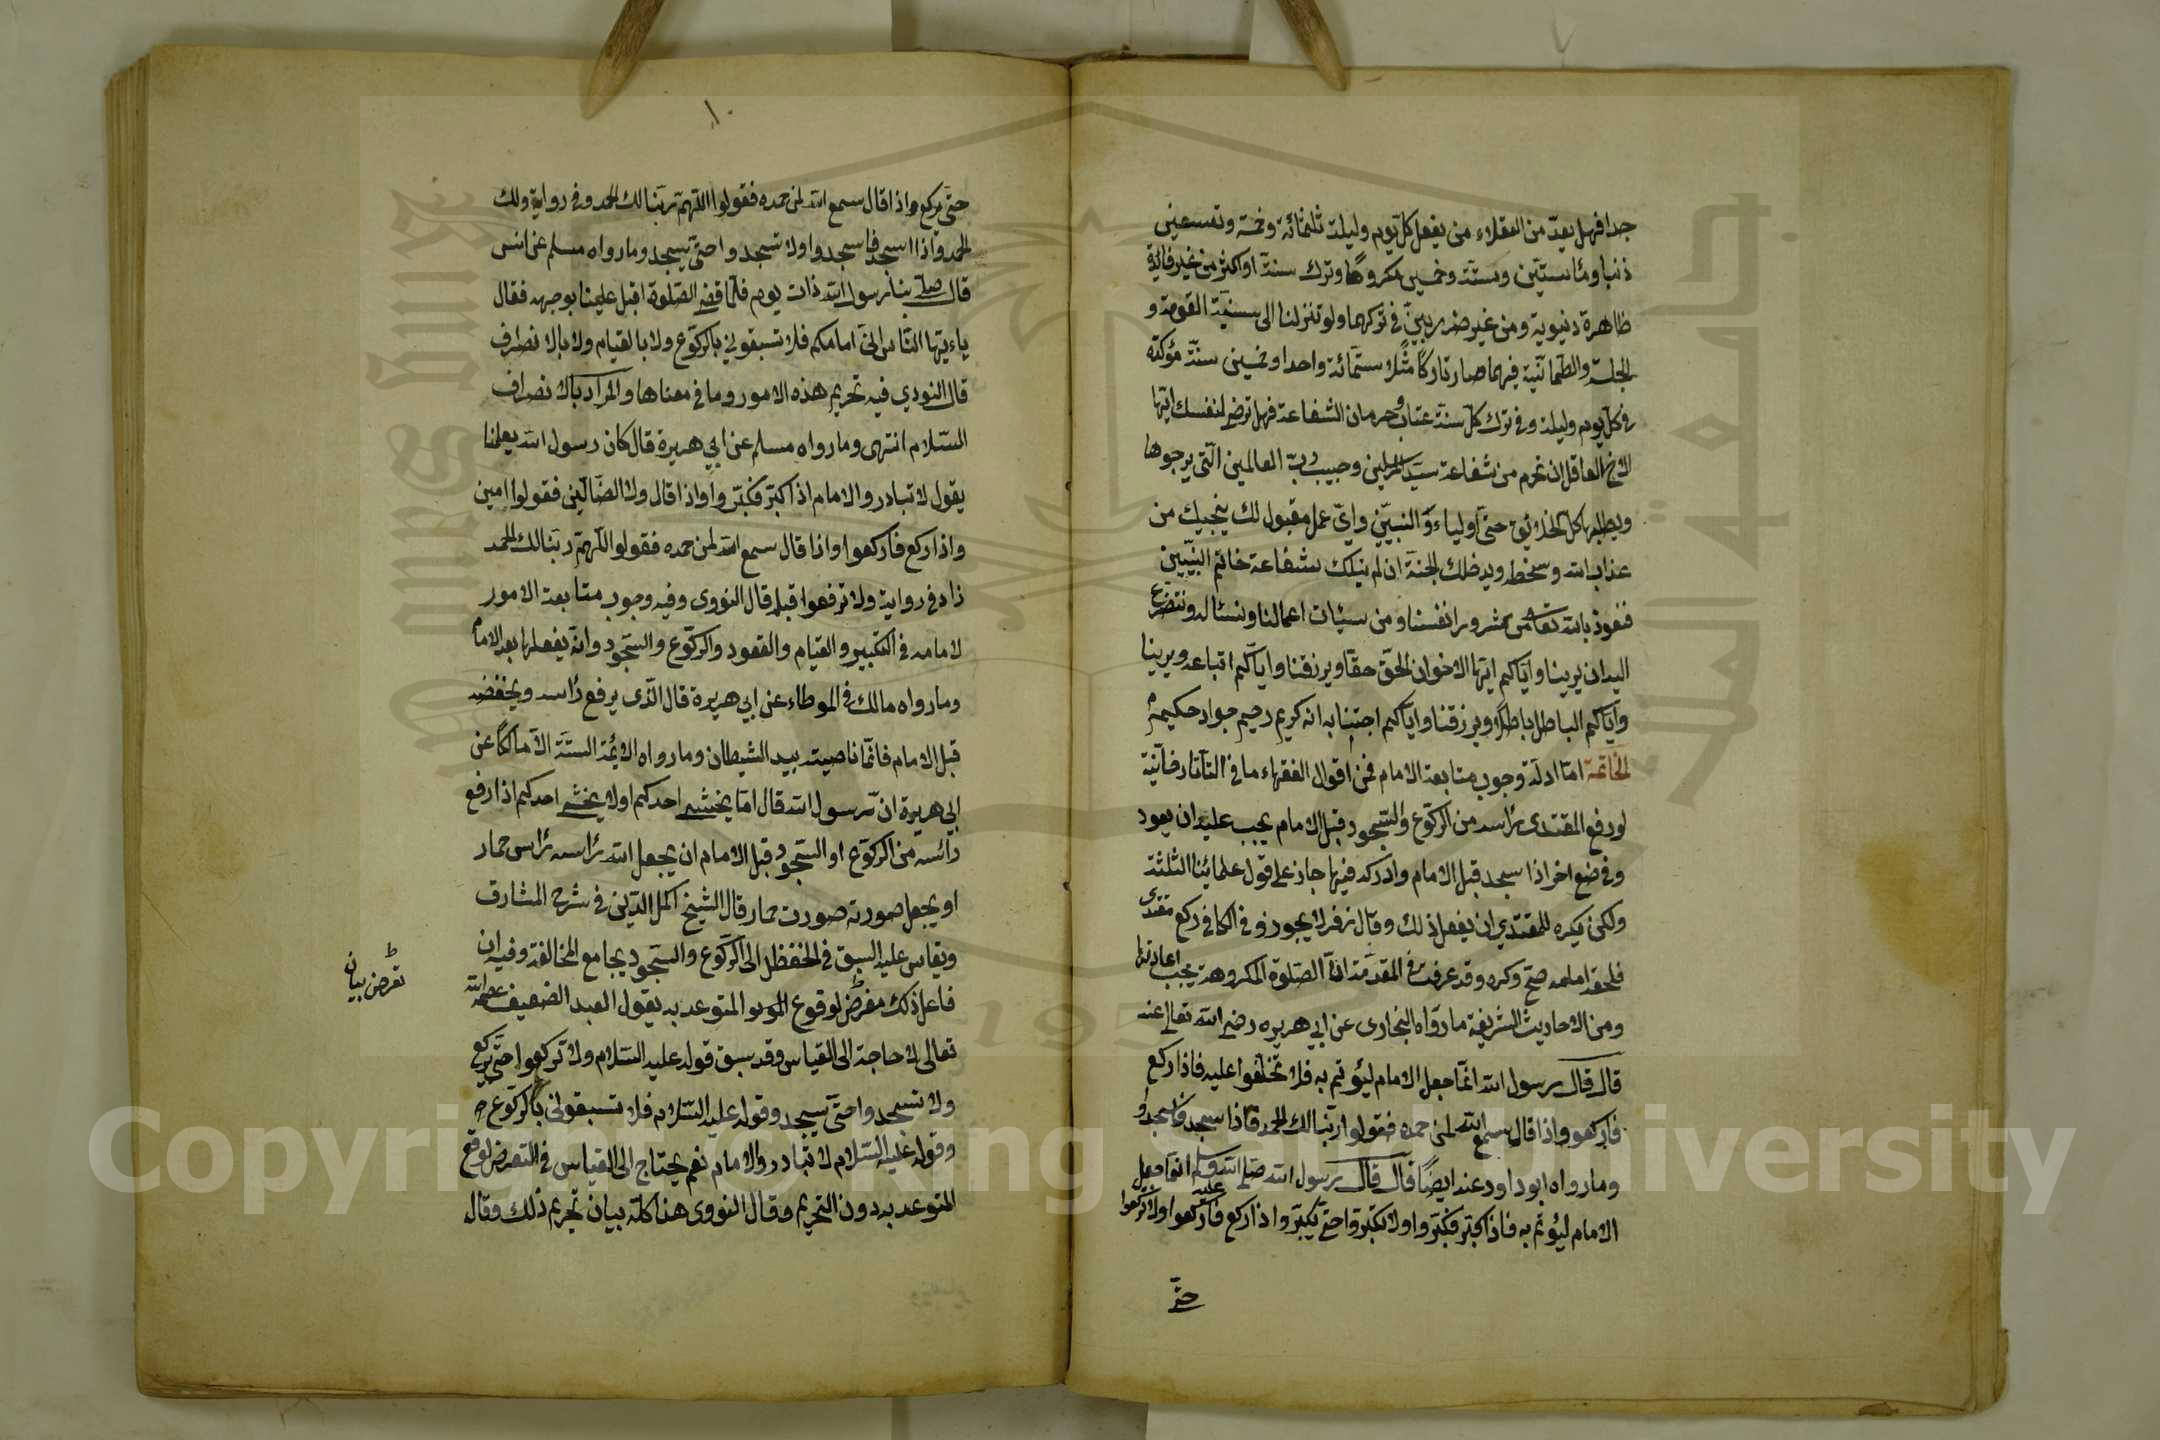 جدا فهل يعدّ من العقلاء من يفعل كل يوم وليلة ثلثمائة وخمسة وتسعين
ذنبا ومأستين وستة وخمسين مكروها وترك سنة او اكثر من غير فائدة
ظاهرة دنيوية ومن غير ضرر بيّن في تركهما ولو تنزلنا الى سنيّة القومة و
الجلسة والطمأنية فيهما صار تاركا مثلا ستمائة واحدا وخمسين سنة مؤكدة
في كل يوم وليلة وفي ترك كل سنة عتاب وحرمان الشفاعة فهل ترضى لنفسك ايها
الاخ العاقل ان تحرم من شفاعة سيد المرسلين وحبيب رب العالمين التي يرجوها
ويطلبها كل الخلايق حتى اولياء والنبيّين واي عمل مقبول لك ينجيك من
عذاب الله وسخطه ويدخلك الجنة ان لم ينلك شفاعة خاتم النبيّين
فنعوذ بالله تعالى من شرور انفسنا ومن سيئات اعمالنا ونسئاله ونتضرع
اليه ان يرينا واياكم ايها الاخوان الحق حقا ويرزقنا واياكم اتباعه ويرينا
واياكم الباطل باطلا ويرزقنا واياكم اجتنابه انه كريم رحيم جواد حكيم
الخاتمة امّا ادلة وجوب متابعة الامام فمن اقوال الفقهاء ما في التاتارخانية
لو رفع المقتدى رأسه من الركوع والسجود قبل الامام يجب عليه ان يعود
وفي ضع اخر اذا سجد قبل الامام وادركه فيها جاز على قول علمائنا الثلثة
ولكن يكره للمقتدي ان يفعل ذلك وقال زفر لا يجوز وفي الكافي ركع مقتدى
فلحقه امامه صح وكره وقد عرفت في المقدمة ان الصلوة المكروهة يجب اعادتها
ومن الاحاديث الشريفة ما رواه البخارى عن ابي هريره رضي الله تعالى عنه
قال قال رسول الله انما جعل الامام ليؤتم به فلا تختلفوا عليه فاذا ركع
فاركعو واذا قال سمع الله لمن حمده فقولوا ربنا لك الحمد فاذا سجد فاسجدوا
وما رواه ابو داود عنه ايضا قال قال رسول الله صلى الله عليه وسلم انما جعل
الامام ليؤتم به فاذا كبر فكبروا ولا تكبروا حتى يكبر واذا ركع فاركعوا ولا تركعوا
حتى
١٠
حتى يركع واذا قال سمع الله لمن حمده فقولوا اللهم ربنا لك الحمد وفي رواية ولك
الحمد واذا اسجد فاسجدوا ولا تسجدوا حتى يسجد وما رواه مسلم عن انس
قال صلى بنا رسول الله ذات يوم فلما قضى الصلوة اقبل علينا بوجهه فقال
ياءيها الناس انى امامكم فلا تسبقوني بالركوع ولا بالقيام ولا بالانصراف
قال النودي فيه تحريم هذه الامور وما في معناها والمراد بالانصراف
السلام انتهى وما رواه مسلم عن ابي هريرة قال كان رسول الله يعلمنا
يقول لا تبادروا الامام اذا كبر فكبروا واذا قال ولا الضالين فقولوا امين
واذا ركع فاركعوا واذا قال سمع الله لمن حمده فقولوا اللهم ربنا لك الحمد
زاد في رواية ولا ترفعوا قبله قال النووى وفيه وجوب متابعة الامور
لامامه في التكبير والقيام والقعود والركوع والسجود وانه يفعلها بعد الامام
وما رواه مالك في الموطاء عن ابي هريرة قال الذى يرفع رأسه ويخفضه
قبل الامام فانما ناصيته بيد الشيطان وما رواه الائمة الستة الا مالكا عن
ابي هريرة ان رسول الله قال اما يخشى احدكم اولا يخشى احدكم اذا رفع
رائسه من الركوع او السجود قبل الامام ان يجعل الله رأسه رأس حمار
او يجعل صورته صورت حمار قال الشيخ اكمل الدين في شرح المشارق
ويقاس عليه السبق في الخفض الى الركوع والسجود بجامع المخالفة وفيه ان
فاعل ذلك مفرض لوقوع المتوعد به يقول العبد الضعيف عصمه الله
تعالى لا حاجة الى القياس وقد سبق قوله عليه السلام ولا تركعوا حتى يركع
ولا تسجدوا حتى يسجد وقوله عليه السلام فلا تسبقونى بالركوع
وقوله عليه السلام لا تبادروا الامام نعم يحتاج الى القياس في التعرض لوقع
المتوعد به دون التحريم وقال النووى هذا كله بيان تحريم ذلك وقال
تعرض بيان
Copyright © King Saud University
جامعة الملك سعود
King Saud University
195